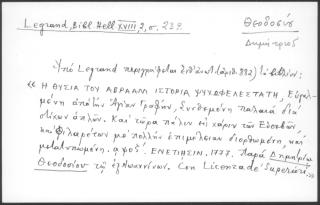 Legrand, Bibl. Hell XVIII, 2, σ. 239.
Θεοδοσίου
Δημήτριος
Ὑπὸ Legrand περιγράφεται (ἀριθ. 882) τὸ βιβλίον:
« Η ΘΥΣΙΑ ΤΟΥ ΑΒΡΑΑΜ ΙΣΤΟΡΙΑ ΨΥΧΩΦΕΛΕΣΤΑΤΗ, Εὐγαλ-
μένη ἀπὸ τὴν Ἁγίαν Γραφὴν, Συνθεμένη παλαιὰ διὰ
στίχων ἁπλῶν. Καὶ τῶρα πάλιν εἰς χάριν τῶν Εὐσεβῶν,
καὶ Φιλαρέτων μὲ πολλὴν ἐπιμέλειαν διορθωμένη καὶ
μετατυπωμένη. ᾳψοζ΄. ΕΝΕΤΙΗΣΙΝ. 1777. Παρὰ Δημητρίῳ
Θεοδοσίου τῷ ἐξ Ἰωαννίνων. Con Licenza de' Superiori. »